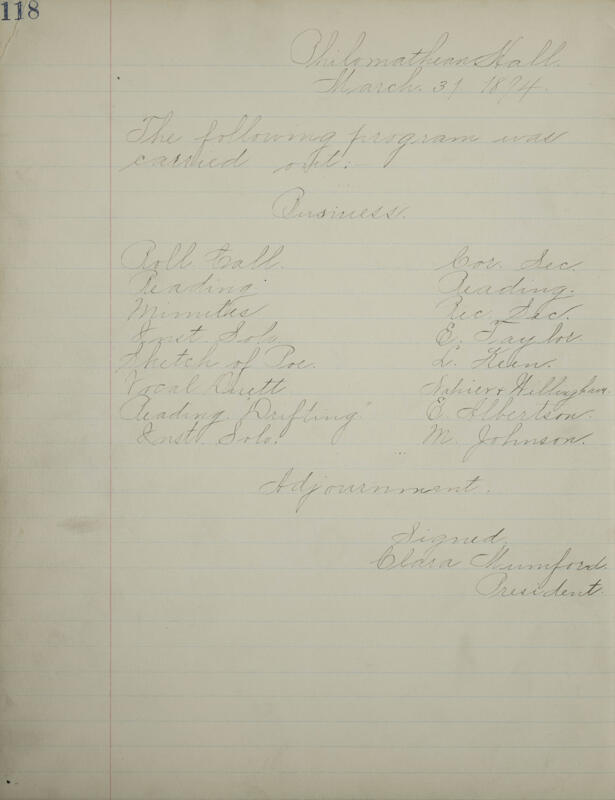 118
Philomathean Hall.
March. 31 1894.
The following program was
carried out:
Business.
Roll Call. Cor. Sec.
Reading Reading.
Minutes Rec. Sec.
Inst. Solo E. Taylor
Sketch of Poe. L. Keen.
Vocal Duett & Willingham.
Reading "Drifting" E. Albertson.
Inst. Solo. M. Johnson.
Adjournment.
Signed,
Clara Mumford.
President.